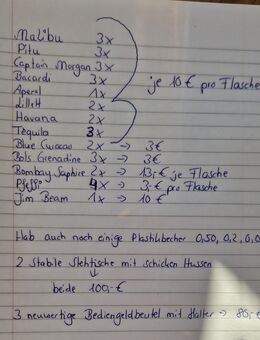 Malibu 3x
Pitu 3x
Captain Morgan 3x
Bacardi 3x
je 10€ pro Flasche
Aperol 1x
Lillet 2x
Havana 2x
Tequila 3x
Blue Curacao 2x → 3€
Bols Grenadine 3x → 3€
Bombay Saphire 2x → 13,-€ je Flasche
4x → 3,-€ pro Flasche
Jim Beam 1x → 10€
Hab auch noch einige Plastikbecher 0,50, 0,2, 0,0
2 Stabile Stehtische mit schicken Hussen
↓
beide 100,-€
3 neuwertige Bediengeldbeutel mit Halter → 80,-€